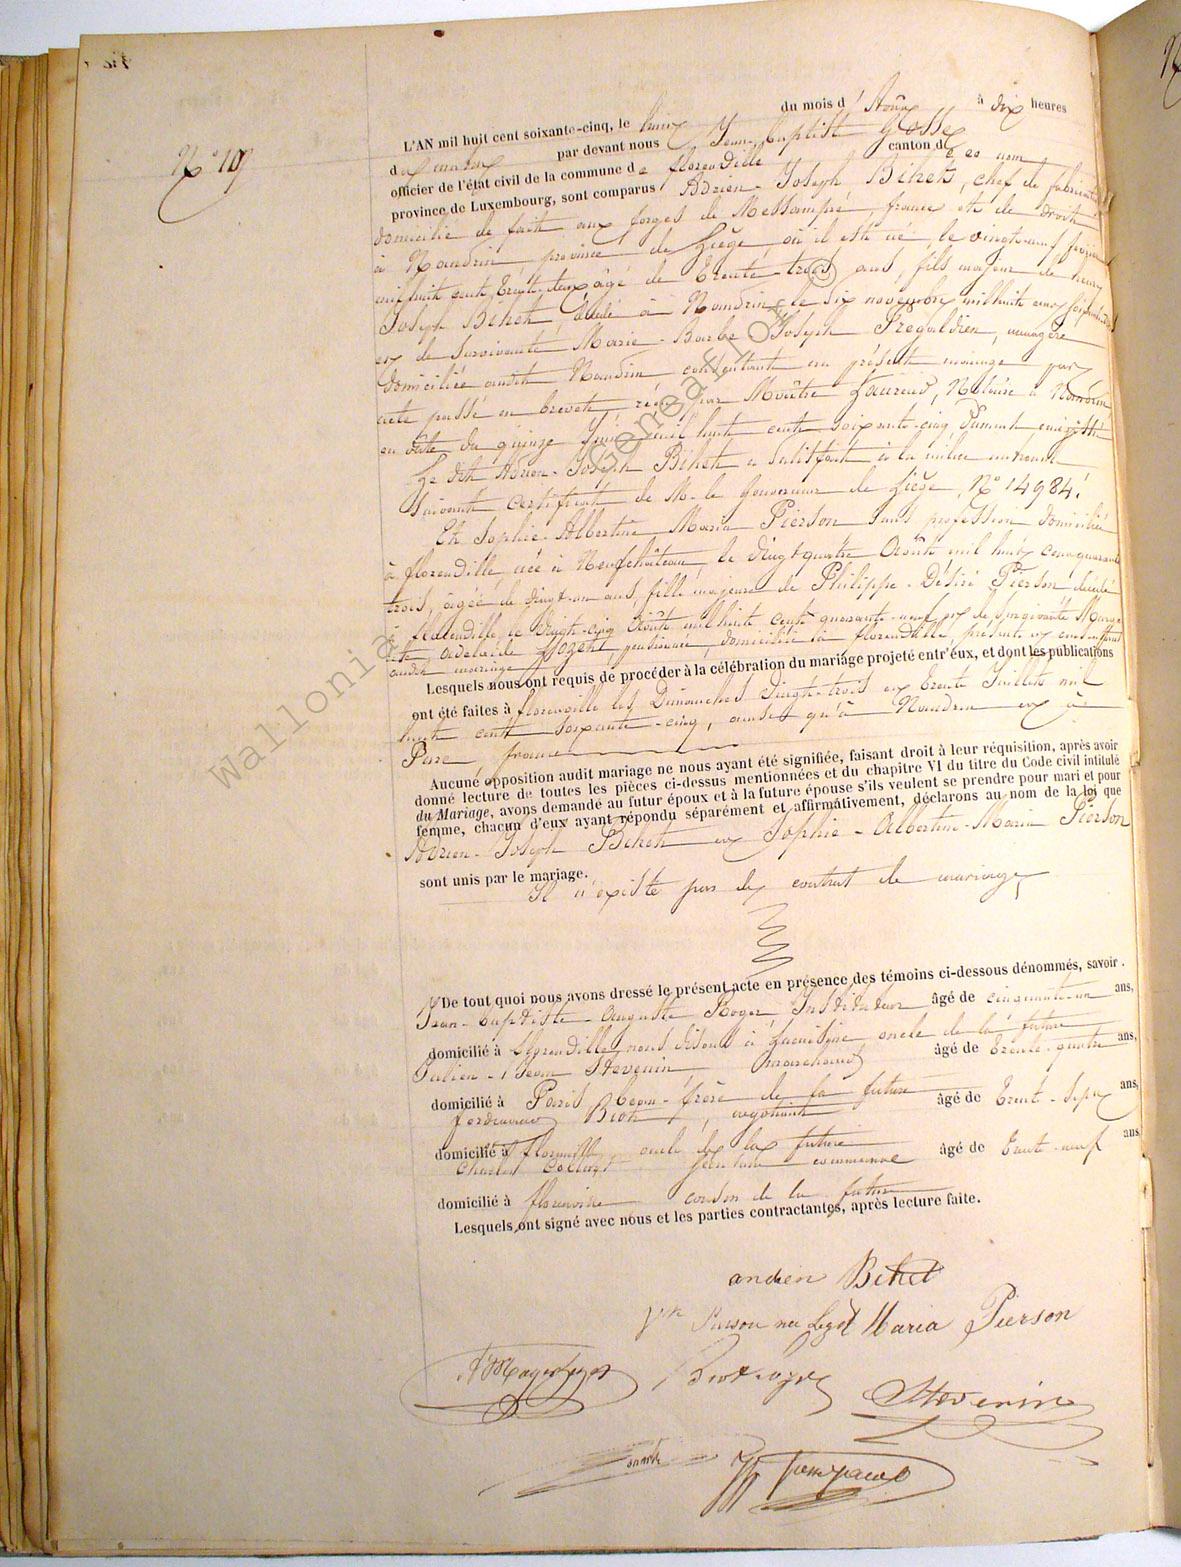 N° 19
L'AN mil huit cent soixante-cinq, le huit du mois d'Août à dix heures
du matin par devant nous Jean-Baptiste
officier de l'état civil de la commune de florenville canton de ce nom
province de Luxembourg, sont comparus Adrien-Joseph Bihet, chef de fabrication
domicilié de fait aux forges de Messempré france et de droit
à Nandrin, province de Liège où il est né, le vingt-neuf
mil huit cent trente-deux âgé de trente-trois ans, fils majeur de henry
Joseph Bihet, décédé à Nandrin, le six novembre mil huit cent
et de survivante Marie-Barbe-Joseph Fregaldien, ménagère
domiciliée audit Nandrin consentant au présent mariage par
acte passé en brevet, reçu par Maître Laurend, Notaire à Nandrin
en date du quinze Juin mil huit cent soixante-cinq Dument enregistré
Le dit Adrien-Joseph Bihet a satisfait à la milice nationale
suivant certificat de M. le Gouverneur de Liège, N° 14984.
Et Sophie-Albertine-Maria Pierson sans profession domiciliée
à florenville, née à Neufchâteau, le vingt-quatre Août mil huit cent quarante
trois, âgée de vingt-un ans, fille majeure de Philippe-Désiré Pierson, décédé
à florenville le vingt-cinq Août mil huit cent quarante-neuf et de survivante
adelaide pensionnée, domiciliée à florenville, présente et consentant
audit mariage
Lesquels nous ont requis de procéder à la célébration du mariage projeté entr'eux, et dont les publications
ont été faites à florenville les Dimanches vingt-trois et trente Juillet mil
huit cent soixante-cinq, ainsi qu'à Nandrin et à
Pure, france
Aucune opposition audit mariage ne nous ayant été signifiée, faisant droit à leur réquisition, après avoir
donné lecture de toutes les pièces ci-dessus mentionnées et du chapitre VI du titre du Code civil intitulé
du Mariage, avons demandé au futur époux et à la future épouse s'ils veulent se prendre pour mari et pour
femme, chacun d'eux ayant répondu séparément et affirmativement, déclarons au nom de la loi que
Adrien-Joseph Bihet et Sophie-Albertine-Maria Pierson
sont unis par le mariage.
Il n'existe pas de contrat de mariage
De tout quoi nous avons dressé le présent acte en présence des témoins ci-dessous dénommés, savoir.
Jean-Baptiste-Auguste Roger, Instituteur âgé de cinquante-un ans,
domicilié à oncle de la future
Julien-Léon Stevenin, marchand âgé de trente-quatre ans,
domicilié à Paris beau-frère de la future
ferdinand Biot, négociant âgé de trente-sept ans,
domicilié à florenville oncle de la future
Charles secrétaire communal âgé de trente-neuf ans
domicilié à florenville cousin de la future
Lesquels ont signé avec nous et les parties contractantes, après lecture faite.
Bihet
Maria Pierson
Stevenin
Wallonia Geneaflor ©